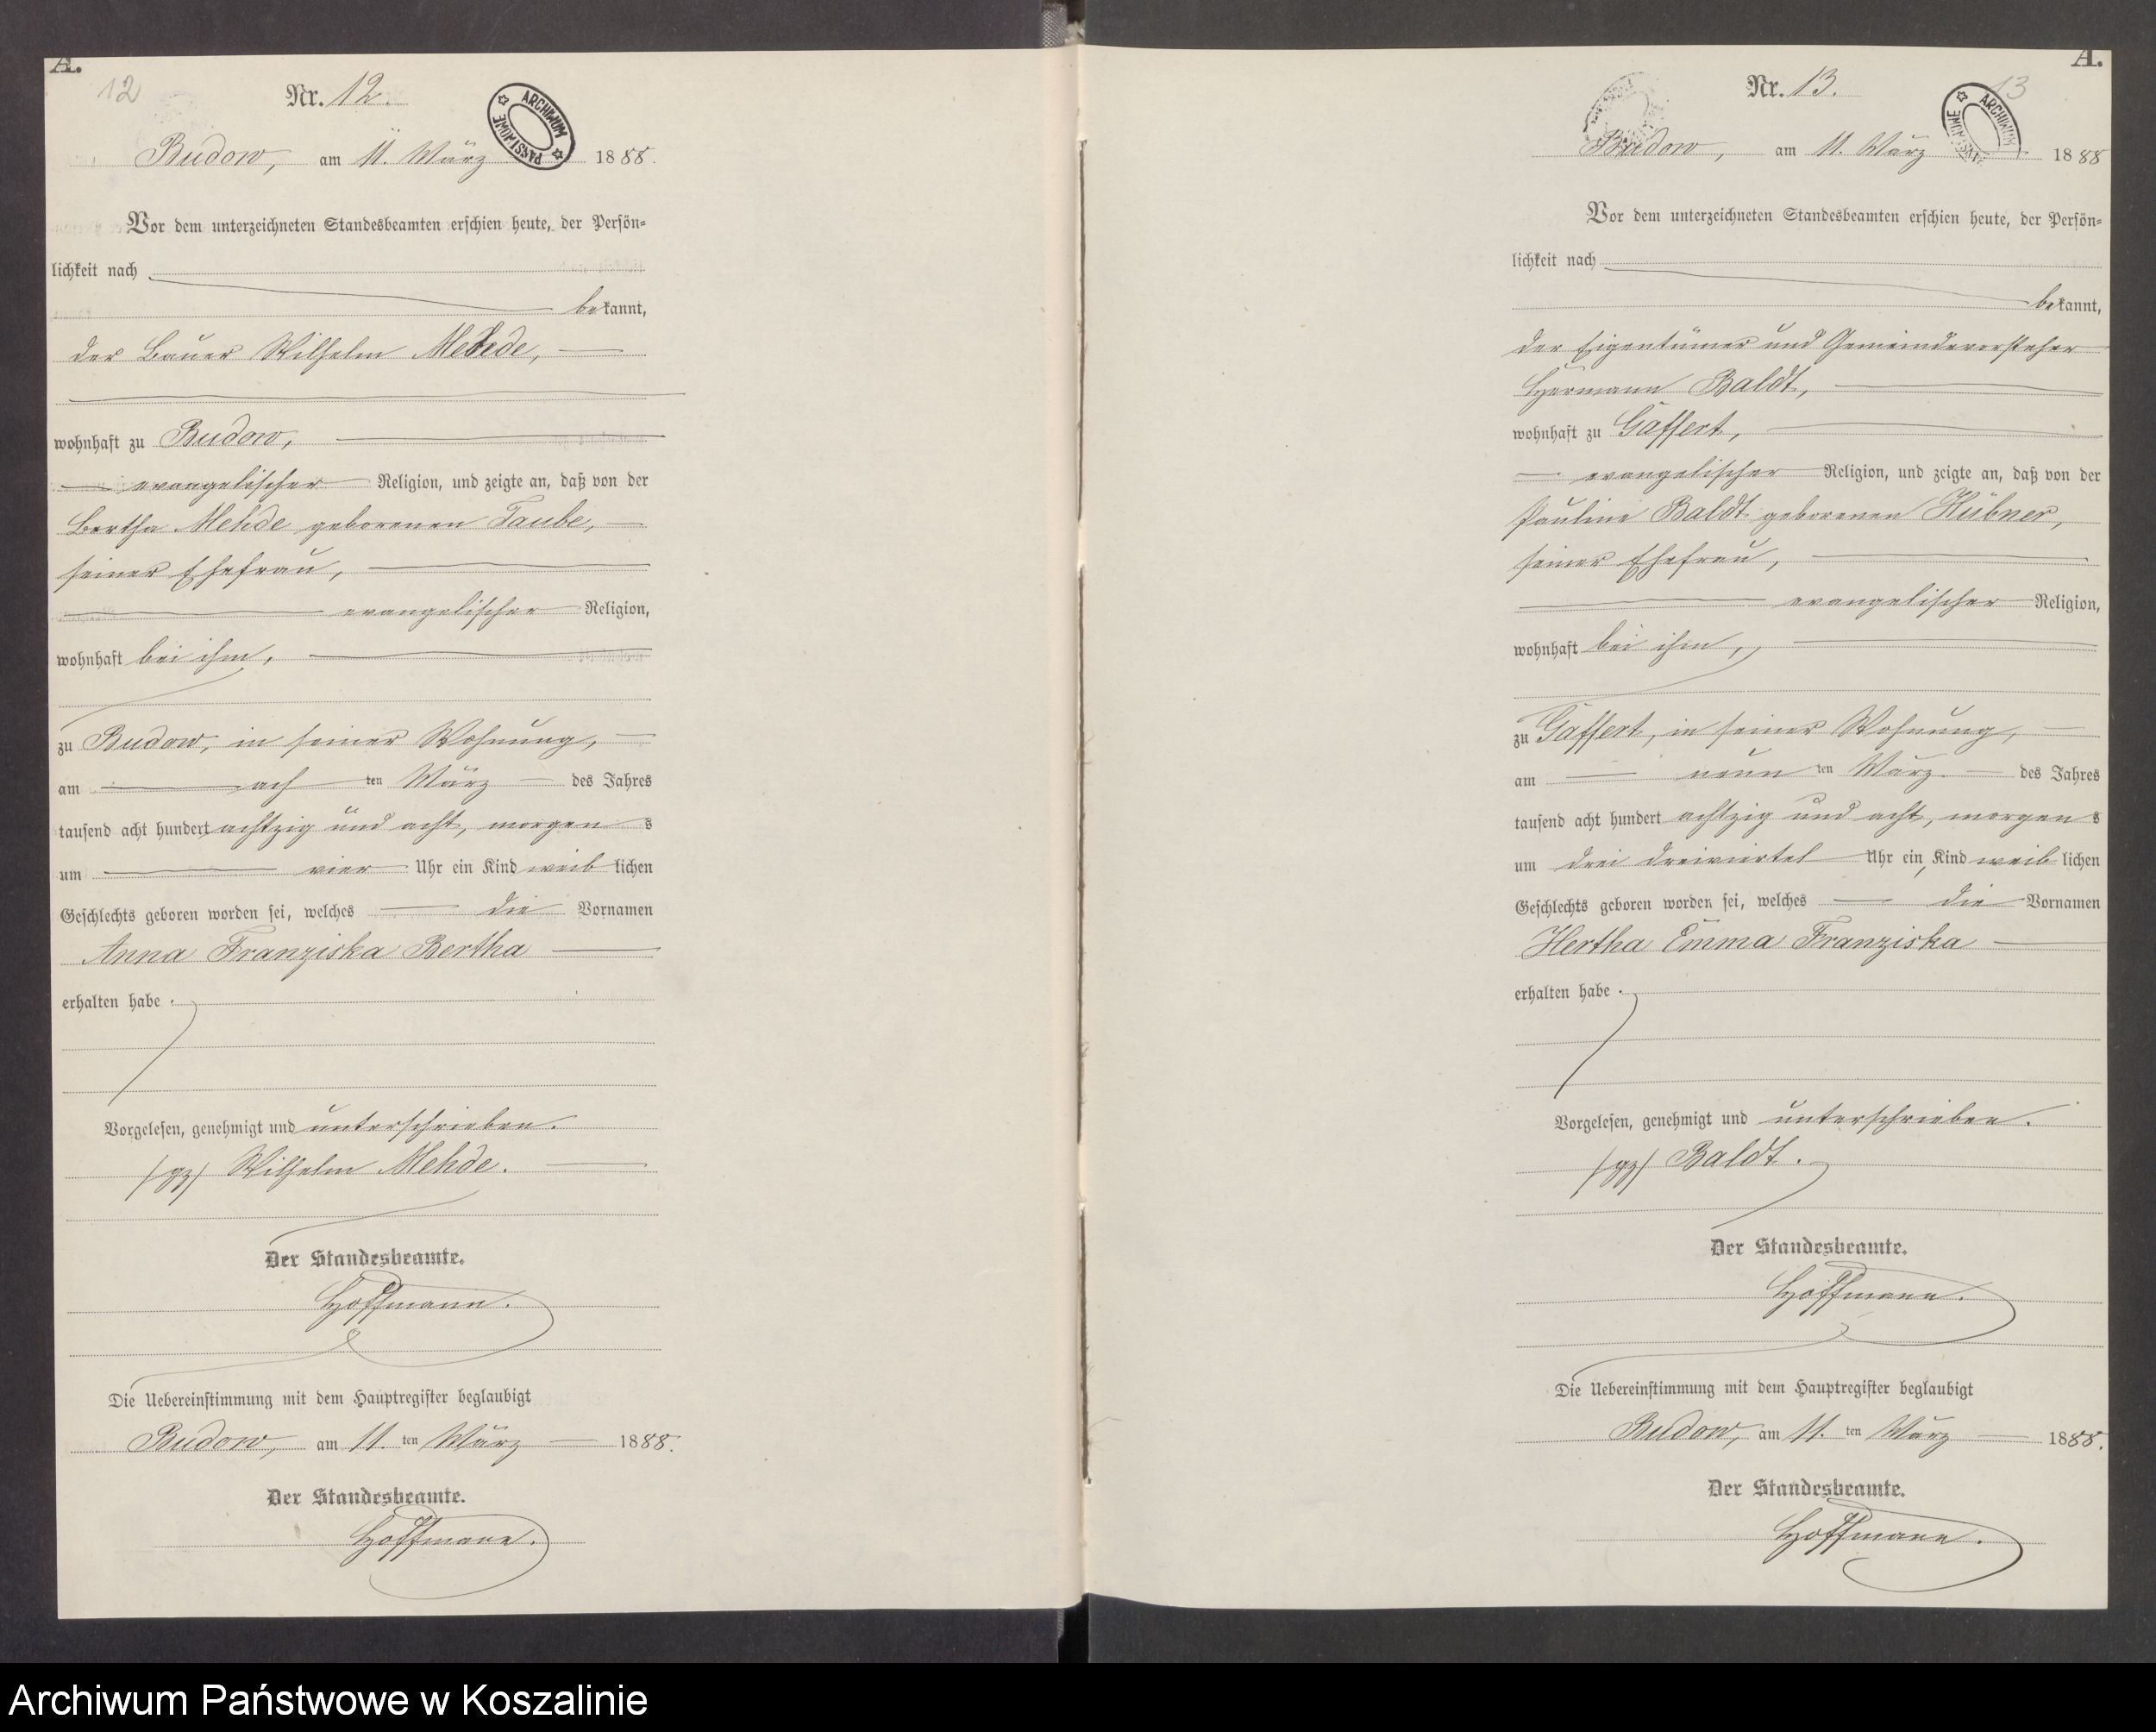 A.
12
Nr. 12.
ARCHIWUM PAŃSTWOWE
Budow, am 11. März 1888.
Vor dem unterzeichneten Standesbeamten erschien heute, der Persön-
lichkeit nach
bekannt,
der Bauer Wilhelm Mehde,
wohnhaft zu Budow,
evangelischer Religion, und zeigte an, daß von der
Bertha Mehde geborenen Taube,
seiner Ehefrau,
evangelischer Religion,
wohnhaft bei ihm,
zu Budow, in seiner Wohnung,
am ach ten März des Jahres
tausend acht hundert achtzig und acht, morgens
um vier Uhr ein Kind weiblichen
Geschlechts geboren worden sei, welches die Vornamen
Anna Franziska Bertha
erhalten habe.
Vorgelesen, genehmigt und unterschrieben.
/gz/ Wilhelm Mehde.
Der Standesbeamte.
Hoffmann.
Die Uebereinstimmung mit dem Hauptregister beglaubigt
Budow, am 11. ten März 1888.
Der Standesbeamte.
Hoffmann.
A.
13
Nr. 13.
ARCHIWUM
Budow, am 11. März 1888
Vor dem unterzeichneten Standesbeamten erschien heute, der Persön-
lichkeit nach
bekannt,
der Eigentümer und Gemeindevorsteher
Hermann Baldt,
wohnhaft zu Gaffert,
evangelischer Religion, und zeigte an, daß von der
Pauline Baldt geborenen Hübner,
seiner Ehefrau,
evangelischer Religion,
wohnhaft bei ihm,
zu Gaffert, in seiner Wohnung,
am neun ten März des Jahres
tausend acht hundert achtzig und acht, morgens
um drei dreiviertel Uhr ein Kind weiblichen
Geschlechts geboren worden sei, welches die Vornamen
Hertha Emma Franziska
erhalten habe.
Vorgelesen, genehmigt und unterschrieben.
/gz/ Baldt.
Der Standesbeamte.
Hoffmann.
Die Uebereinstimmung mit dem Hauptregister beglaubigt
Budow, am 11. ten März 1888.
Der Standesbeamte.
Hoffmann.
Archiwum Państwowe w Koszalinie